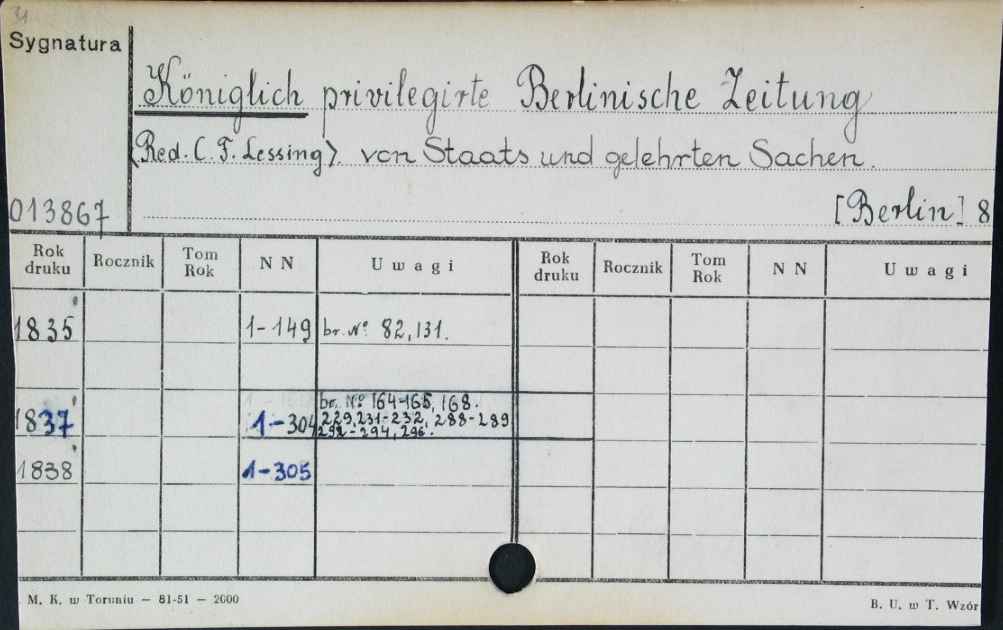 31
Sygnatura
Königlich privilegirte Berlinische Zeitung
<Red. C. F. Lessing>. von Staats und gelehrten Sachen.
013867
[Berlin] 8
Rok druku Rocznik Tom Rok N N Uwagi Rok druku Rocznik Tom Rok N N Uwagi
1835 1-149 br. № 82, 131.
br. № 164-165, 168.
1837 1-304 229, 231-232, 288-289
292-294, 296.
1838 1-305
M. K. w Toruniu — 81-51 — 2000
B. U. w T. Wzór